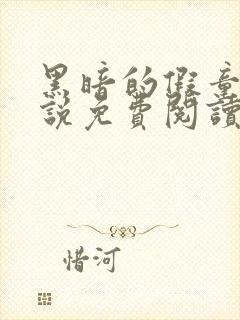 黑暗的假童
說免費閱讀
惜河